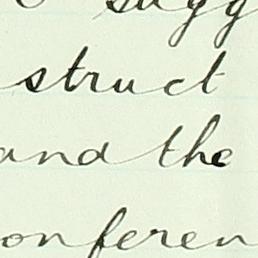 sugg
struct
and the
onferen